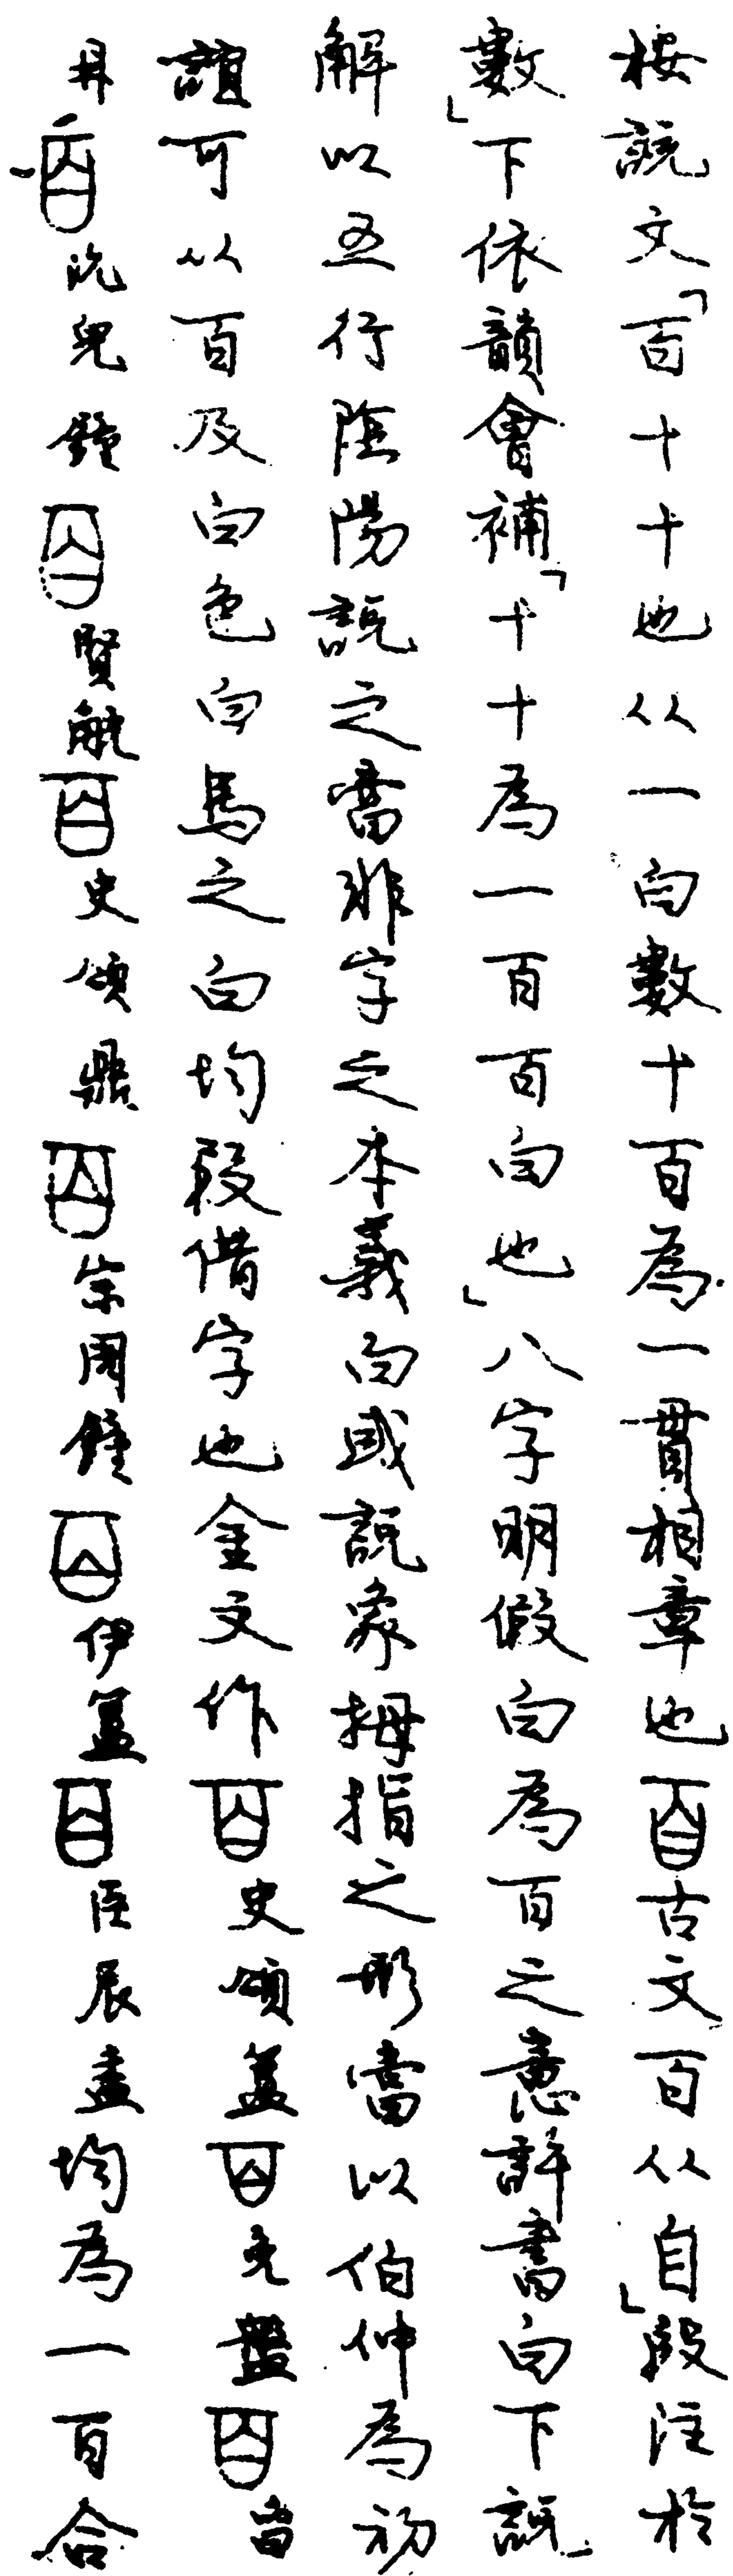 按說文「百十十也从一白數十百為一貫相章也𦣻古文百从自」段注於
數」下依韻會補「十十為一百百白也」八字明假白為百之意許書白下說
解以五行陰陽說之當非字之本義白或說象拇指之形當以伯仲為初
誼可以百及白色白馬之白均叚借字也金文作史頌簋免盤舀
鼎沇兒鐘賢觥史頌鼎宗周鐘伊簋臣辰盉均為一百合